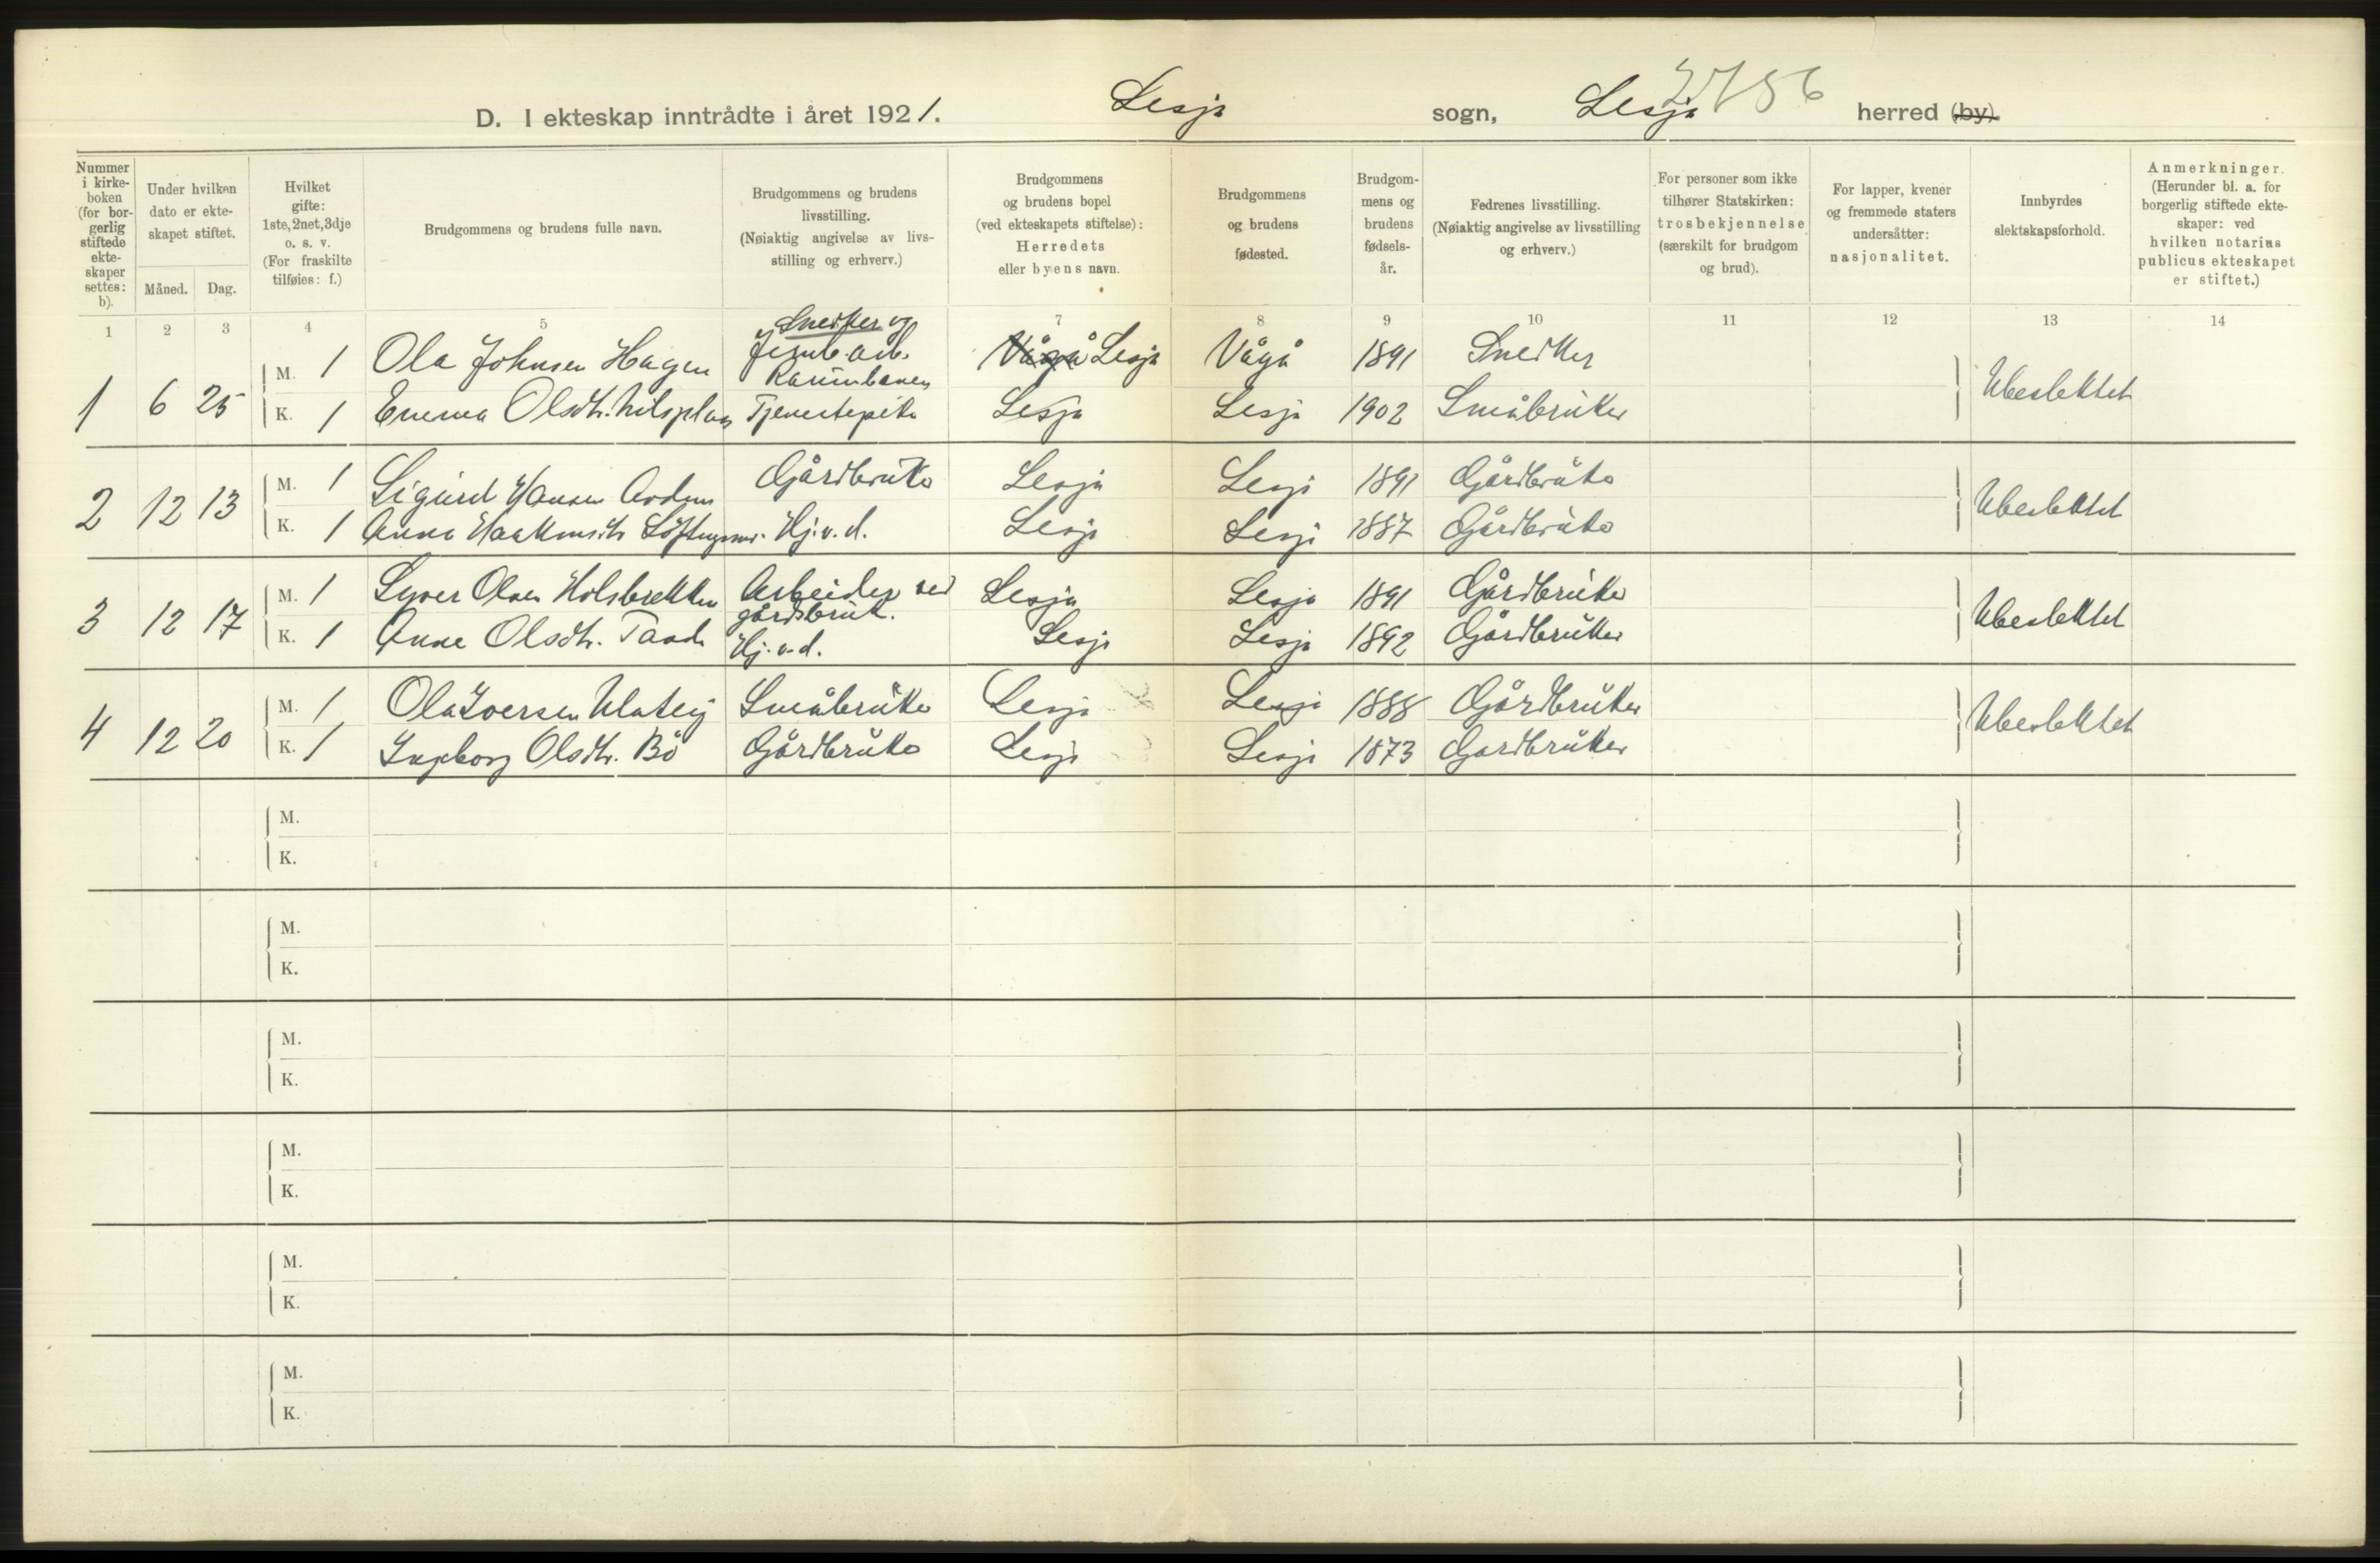 2756
D. I ekteskap inntrådte i året 1921. Lesja sogn, Lesja herred (by).
Nummer i kirke-boken (for bor-gerlig stiftede ekte-skaper settes: b).
Under hvilken dato er ekte-skapet stiftet.
Måned. Dag.
Hvilket gifte: 1ste, 2net, 3dje o. s. v. (For fraskilte tilføies: f.)
Brudgommens og brudens fulle navn.
Brudgommens og brudens livsstilling. (Nøiaktig angivelse av livs-stilling og erhverv.)
Brudgommens og brudens bopel (ved ekteskapets stiftelse): Herredets eller byens navn.
Brudgommens og brudens fødested.
Brudgom-mens og brudens fødsels-år.
Fedrenes livsstilling. (Nøiaktig angivelse av livsstilling og erhverv.)
For personer som ikke tilhører Statskirken: trosbekjennelse (særskilt for brudgom og brud).
For lapper, kvener og fremmede staters undersåtter: nasjonalitet.
Innbyrdes slektskapsforhold.
Anmerkninger. (Herunder bl. a. for borgerlig stiftede ekte-skaper: ved hvilken notarius publicus ekteskapet er stiftet.)
1 2 3 4 5 6 7 8 9 10 11 12 13 14
1 6 25 M. 1 Ola Johnsen Hagen Snedker og Jernb.arb. Raumabanen Vågå Lesja Vågå 1891 Snedker Ubeslektet
K. 1 Emma Olsdtr. Tjenestepike Lesja Lesja 1902 Småbruker
2 12 13 M. 1 Sigurd Hansen Gårdbruker Lesja Lesja 1891 Gårdbruker Ubeslektet
K. 1 Anne Hj.v.d. Lesja Lesja 1887 Gårdbruker
3 12 17 M. 1 Syver Olsen Holsbrekken Arbeider ved gårdsbruk. Lesja Lesja 1891 Gårdbruker Ubeslektet
K. 1 Anne Olsdtr. Hj.v.d. Lesja Lesja 1892 Gårdbruker
4 12 20 M. 1 Ola Iversen Småbruker Lesja Lesja 1888 Gårdbruker Ubeslektet
K. 1 Ingeborg Olsdtr. Bö Gårdbruker Lesja Lesja 1873 Gardbruker
M.
K.
M.
K.
M.
K.
M.
K.
M.
K.
M.
K.